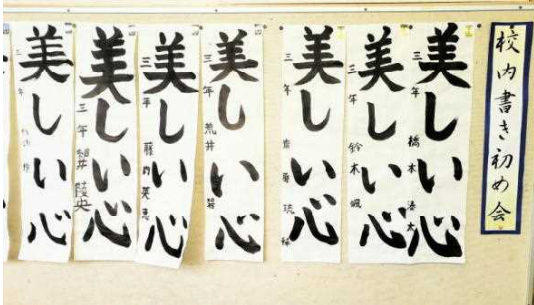 校内書き初め会
美しい心
三年 橋本 湊太
美しい心
三年 鈴木 颯
美しい心
三年
美しい心
三年 荒井
美しい心
三年 藤
美しい心
三年 細井 陵央
美しい心
三年